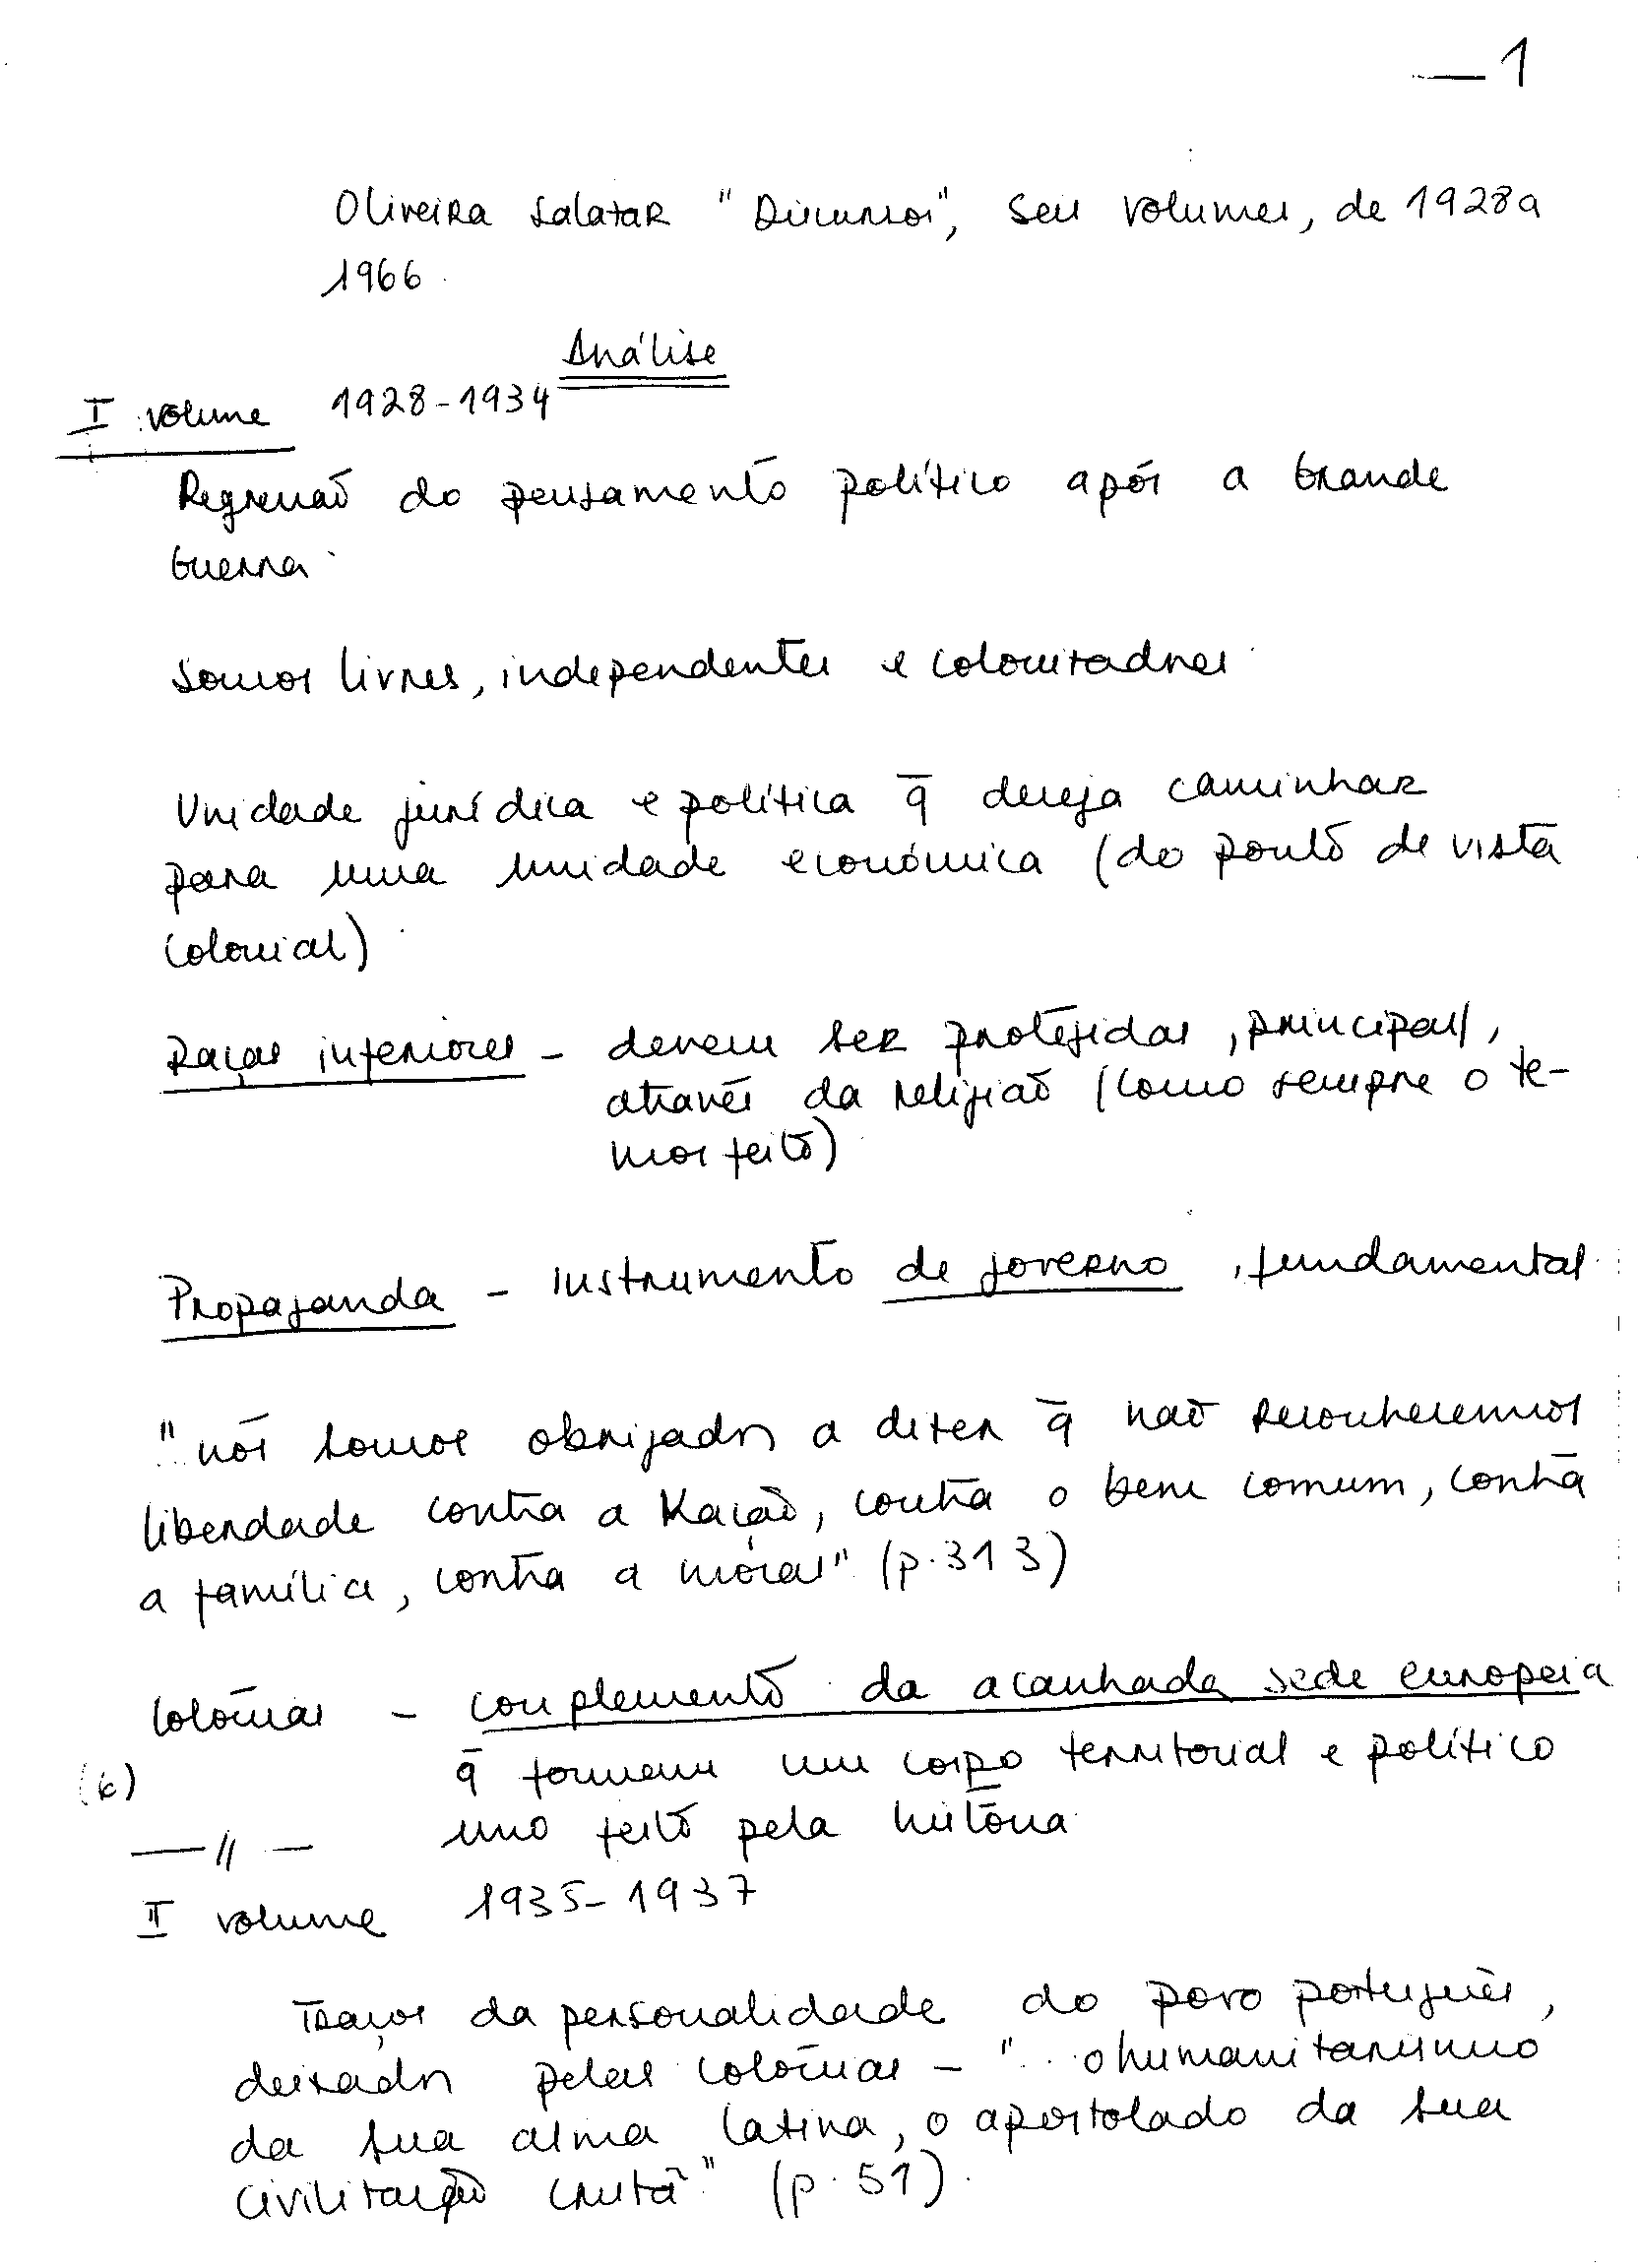 — 1
Oliveira Salazar "Discursos", seis volumes, de 1928 a
1966.
Análise
I volume 1928-1934
Regressão do pensamento político após a Grande
Guerra.
Somos livres, independentes e colonizadores.
Unidade jurídica e política q̄ deseja caminhar
para uma unidade económica (do ponto de vista
colonial).
Raças inferiores - devem ser protejidas, principal/,
através da religião (como sempre o te-
mos feito)
Propaganda - instrumento de governo, fundamental.
"nós somos obrigados a dizer q̄ não reconhecemos
liberdade contra a Nação, contra o bem comum, contra
a família, contra a moral" (p. 313)
Colónias - complemento da acanhada sede europeia
q̄ formam um corpo territorial e político
(6)
uno feito pela história.
— // —
II volume 1935-1937
Traços da personalidade do povo português,
deixados pelas colónias - "... o humanitarismo
da sua alma latina, o apostolado da sua
civilização cristã" (p. 51).